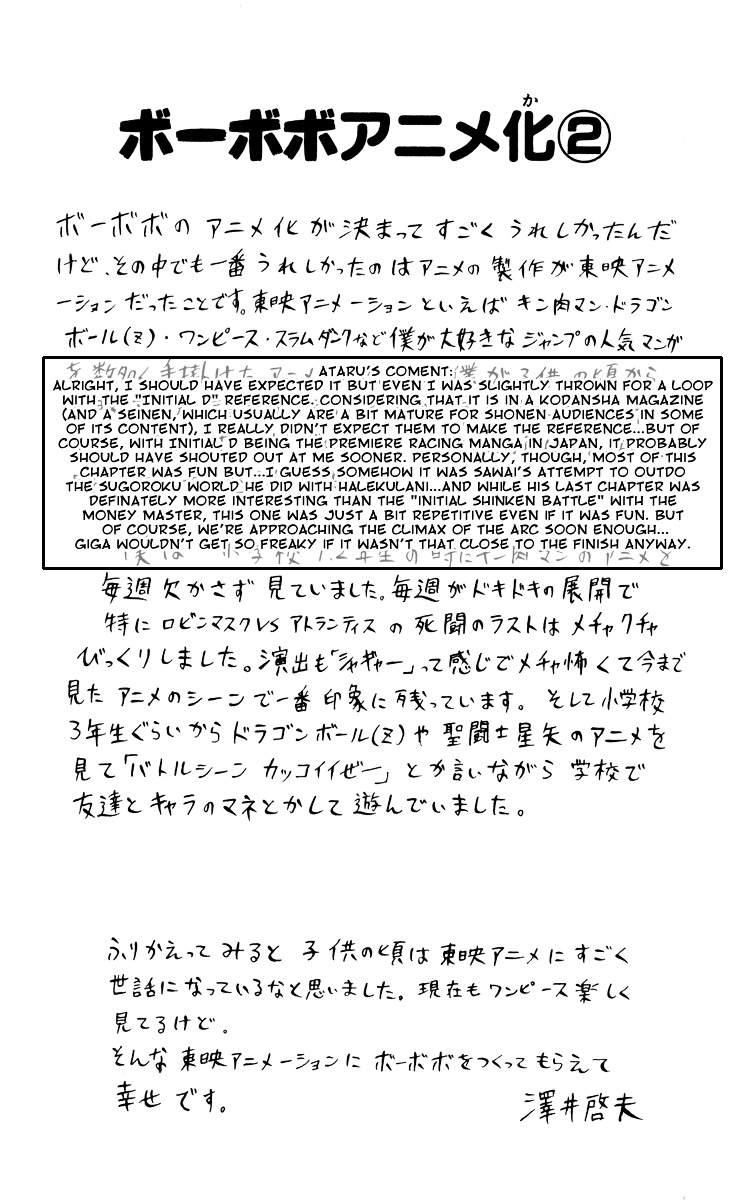 か
ボーボボアニメ化②
ボーボボの アニメ化が決まって すごく うれしかったんだ
けど、その中でも一番 うれしかったのは アニメの 製作が東映アニメ
ーション だったことです。東映アニメーション といえば キン肉マン・ドラゴン
ボール(Z)・ワンピース・スラムダンクなど 僕が大好きな ジャンプの人気マンガ
ATARU'S COMENT:
ALRIGHT, I SHOULD HAVE EXPECTED IT BUT EVEN I WAS SLIGHTLY THROWN FOR A LOOP
WITH THE "INITIAL D" REFERENCE. CONSIDERING THAT IT IS IN A KODANSHA MAGAZINE
(AND A SEINEN, WHICH USUALLY ARE A BIT MATURE FOR SHONEN AUDIENCES IN SOME
OF ITS CONTENT), I REALLY DIDN'T EXPECT THEM TO MAKE THE REFERENCE...BUT OF
COURSE, WITH INITIAL D BEING THE PREMIERE RACING MANGA IN JAPAN, IT PROBABLY
SHOULD HAVE SHOUTED OUT AT ME SOONER. PERSONALLY, THOUGH, MOST OF THIS
CHAPTER WAS FUN BUT...I GUESS SOMEHOW IT WAS SAWAI'S ATTEMPT TO OUTDO
THE SUGOROKU WORLD HE DID WITH HALEKULANI...AND WHILE HIS LAST CHAPTER WAS
DEFINATELY MORE INTERESTING THAN THE "INITIAL SHINKEN BATTLE" WITH THE
MONEY MASTER, THIS ONE WAS JUST A BIT REPETITIVE EVEN IF IT WAS FUN. BUT
OF COURSE, WE'RE APPROACHING THE CLIMAX OF THE ARC SOON ENOUGH...
GIGA WOULDN'T GET SO FREAKY IF IT WASN'T THAT CLOSE TO THE FINISH ANYWAY.
毎週 欠かさず 見ていました。毎週がドキドキの展開で
特に ロビンマスクVS アトランティス の 死闘のラストは メチャクチャ
びっくりしました。演出も「シャギャー」って感じで メチャ怖くて今まで
見た アニメのシーンで一番 印象に 残っています。 そして小学校
3年生ぐらいから ドラゴンボール(Z)や 聖闘士星矢のアニメを
見て「バトルシーン カッコイイぜー」とか言いながら 学校で
友達と キャラのマネとかして 遊んでいました。
ふりかえって みると 子供の頃は 東映アニメに すごく
世話になっているなと思いました。現在も ワンピース楽しく
見てるけど。
そんな 東映アニメーションに ボーボボを つくって もらえて
幸せです。
澤井啓夫